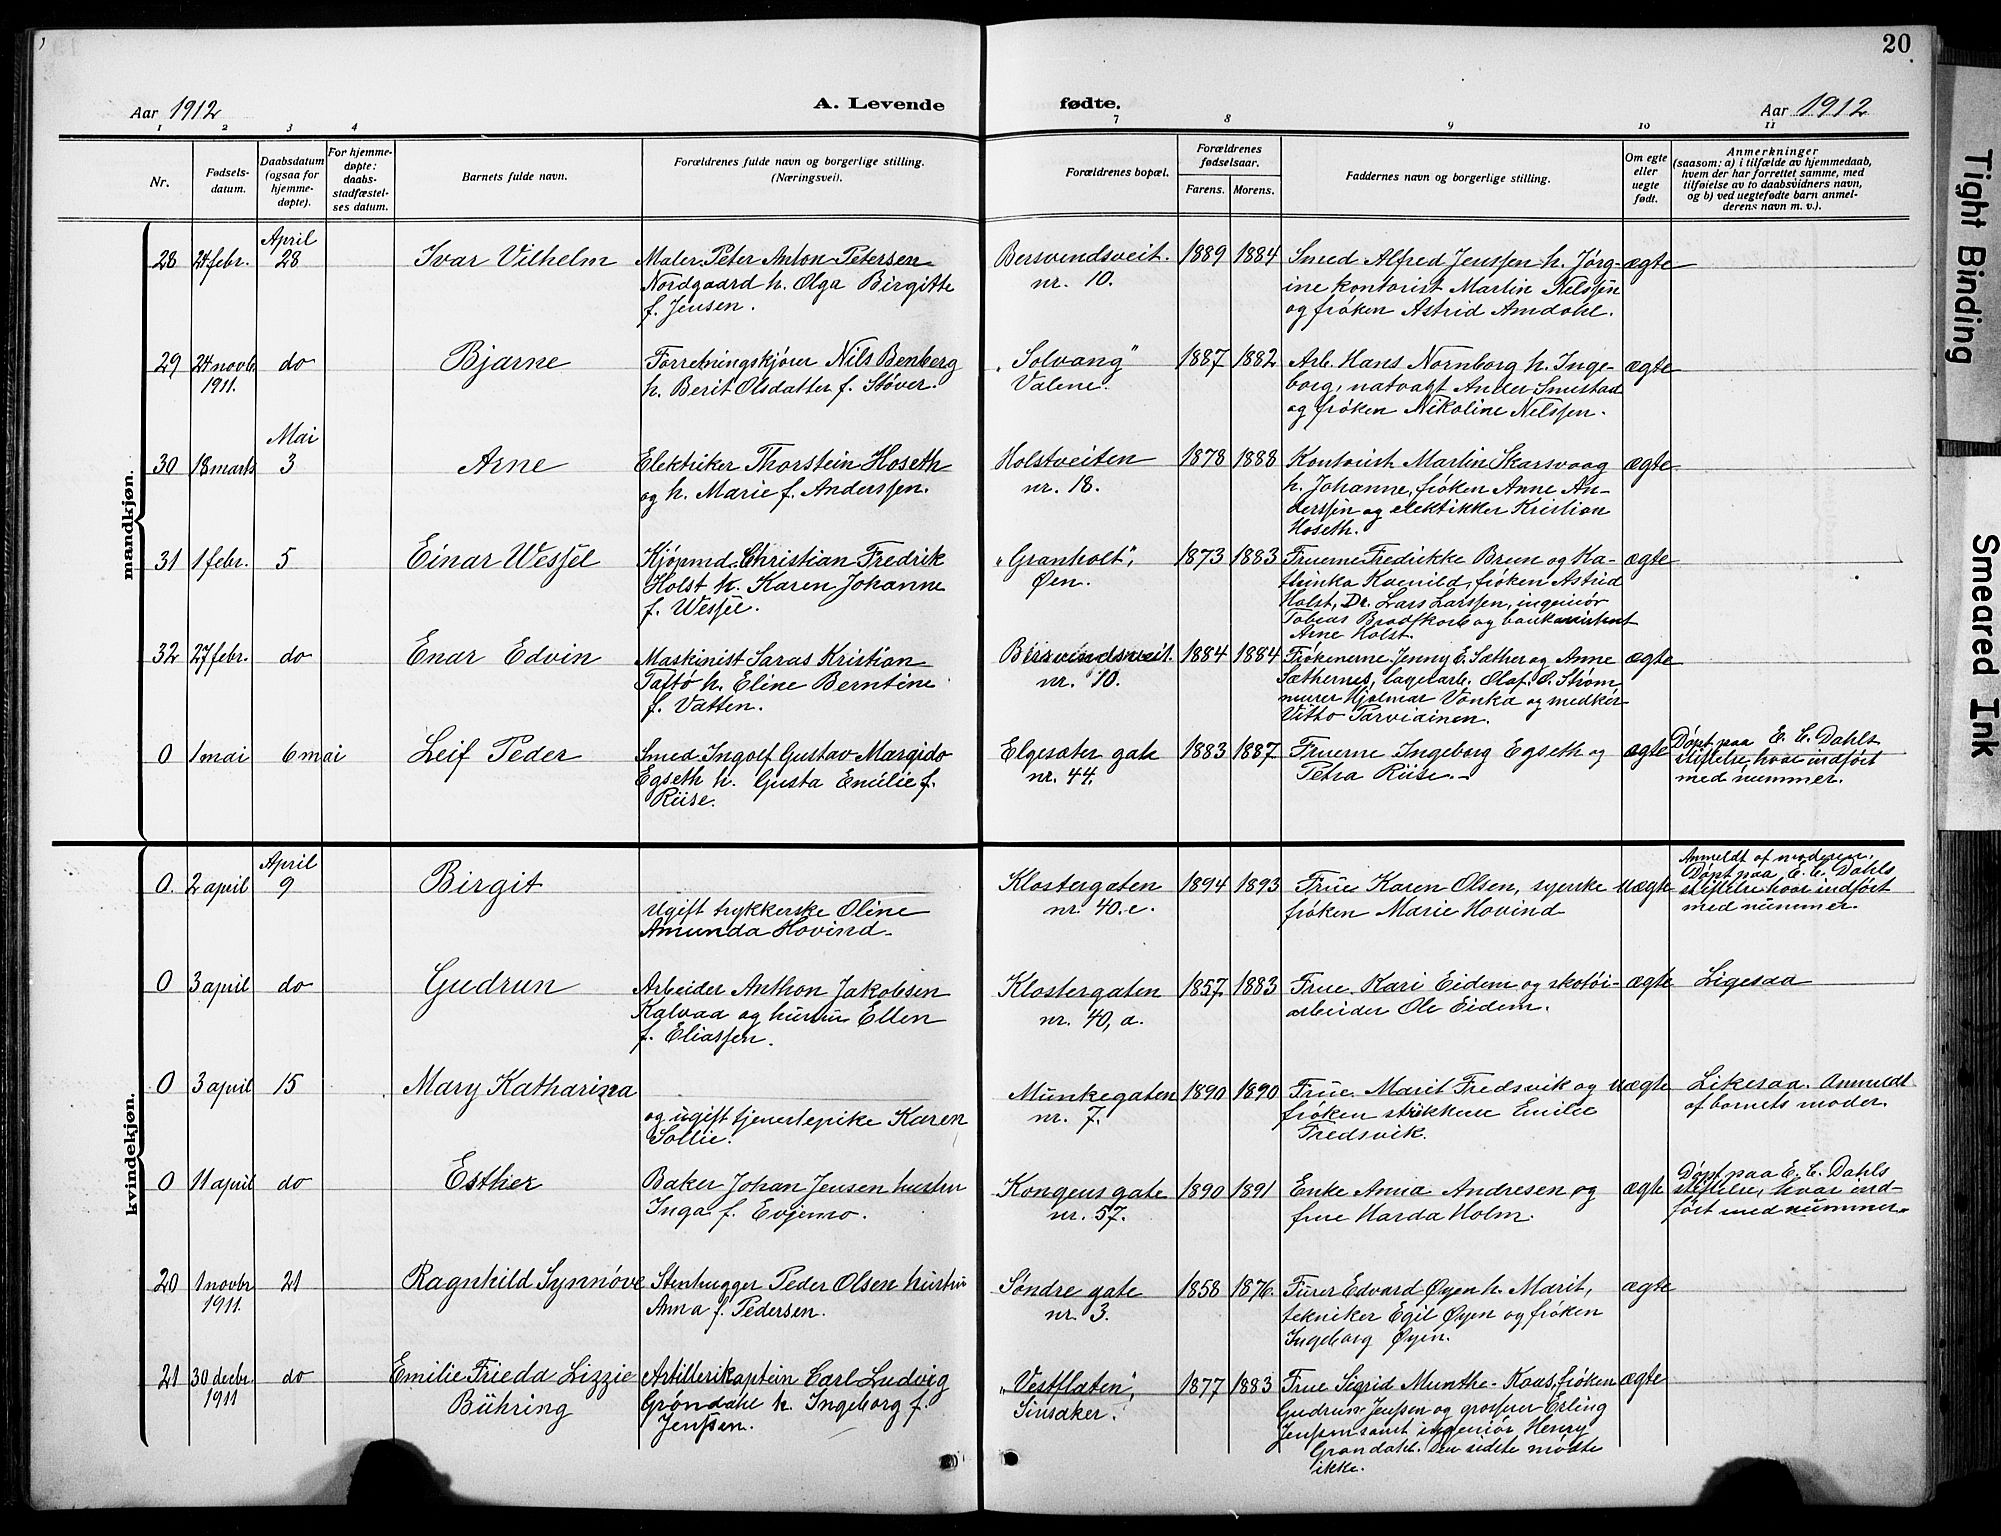 20
Aar 1912
A. Levende
fødte.
Aar 1912
1 2 3 4
7 8 9 10 11
Nr.
Fødsels-
datum.
Daabsdatum
(ogsaa for
hjemme-
døpte).
For hjemme-
døpte:
daabs-
stadfæstel-
ses datum.
Barnets fulde navn.
Forældrenes fulde navn og borgerlige stilling.
(Næringsvei).
Forældrenes bopæl.
Forældrenes
fødselsaar.
Farens. Morens.
Faddernes navn og borgerlige stilling.
Om egte
eller
uegte
født.
Anmerkninger
(saasom: a) i tilfælde av hjemmedaab,
hvem der har forrettet samme, med
tilføielse av to daabsvidners navn,
og b) ved uegtefødte barn anmel-
derens navn m. v.).
mandkjøn.
April
28 24 febr. 28 Ivar Vilhelm
Maler Peter Anton Petersen
Nordgaard h. Olga Birgitte
f. Jensen.
Bersvendsveit.
nr. 10.
1889 1884
Smed Alfred Jenssen h. Jørg-
ine kontorist Martin Nelssen
og frøken Astrid Amdahl.
ægte
29 24 novb. do Bjarne
1911.
Forretningskjører Nils Benberg
h. Berit Olsdatter f. Støver.
"Solvang"
Valene.
1887 1882
Arb. Hans Nornborg h. Inge-
borg, natvagt Ander Smistad
og frøken Nikoline Nelssen.
ægte
Mai
30 18 marts 3 Arne
Elektriker Thorstein Hoseth
og h. Marie f. Anderssen.
Holstveiten
nr. 18.
1878 1888
Kontorist Martin Skarsvaag
h. Johanne, frøken Anne An-
derssen og elektikker Kristian
Hoseth.
ægte
31 1 febr. 5 Einar Wessel
Kjøpmd. Christian Fredrik
Holst h. Karen Johanne
f. Wessel.
"Granholt",
Øen.
1873 1883
Fruerne Fredrikke Brun og Ka-
thinka Kvenild, frøken Astrid
Holst, Dr. Lars Larssen, ingeniør
Tobias Bradskorb og bankassistent
Arne Holst.
ægte
32 27 febr. do Enar Edvin
Maskinist Saras Kristian
Taftø h. Eline Berntine
f. Vatten.
Bersvendsveit.
nr. 10.
1884 1884
Frøkenerne Jenny E. Sæther og Anne
Sæthernes, lagerarb. Olaf O. Strøm
murer Hjalmar Vonka og
Vitto Parviainen.
ægte
0 1 mai 6 mai Leif Peder
Smed Ingolf Gustav Margido
Egseth h. Gusta Emilie f.
Riise.
Elgesæter gate
nr. 44.
1883 1887
Fruerne Ingeborg Egseth og
Petra Riise.
ægte
Døpt paa E. C. Dahls
stiftelse, hvor indført
med nummer.
kvindekjøn.
April
0. 2 april 9 Birgit
Ugift trykkerske Oline
Amunda Hovind.
Klostergaten
nr. 40. c.
1894 1893
Frue Karen Olsen, syerske
frøken Marie Hovind
uægte
Anmeldt af moderen.
Døpt paa E. C. Dahls
stiftelse hvor indført
med nummer.
0 3 april do Gudrun
Arbeider Anthon Jakobsen
Kalvaa og hustru Ellen
f. Eliassen.
Klostergaten
nr. 40, a.
1857 1883
Frue Kari Eidem og skotøi-
arbeider Ole Eidem.
ægte
Ligesaa
0 3 april 15 Mary Katharina
og ugift tjenestepike Karen
Sollie.
Munkegaten
nr. 7.
1890 1890
Frue Marit Fredsvik og
frøken strikkerse Emilie
Fredsvik.
uægte
Likesaa. Anmeldt
af barnets moder.
0 11 april do Esther
Baker Johan Jensen hustru
Inga f. Evjemo.
Kongens gate
nr. 57.
1890 1891
Enke Anna Andresen og
frue Harda Holm.
ægte
Døpt paa E. C. Dahls
stiftelse, hvor ind-
ført med nummer.
20 1 novbr. 21 Ragnhild Synnøve
1911.
Stenhugger Peder Olsen hustru
Anna f. Pedersen.
Søndre gate
nr. 3.
1858 1876.
Furer Edvard Øyen h. Marit,
tekniker Egil Øyen og frøken
Ingeborg Øyen.
ægte
21 30 decbr. do Emilie Frieda Lizzie
1911 Bühring
Artillerikaptein Carl Ludvig
Grøndahl h. Ingeborg f.
Jenssen.
"Vestflaten",
Sirisaker.
1877 1883
Frue Sigrid Munthe-Kaas, frøken
Gudrun Jenssen og grosserer Erling
Jenssen samt ingeniør Henry
Grøndahl. Den sidste møtte
ikke.
ægte
Tight Binding
Smeared Ink